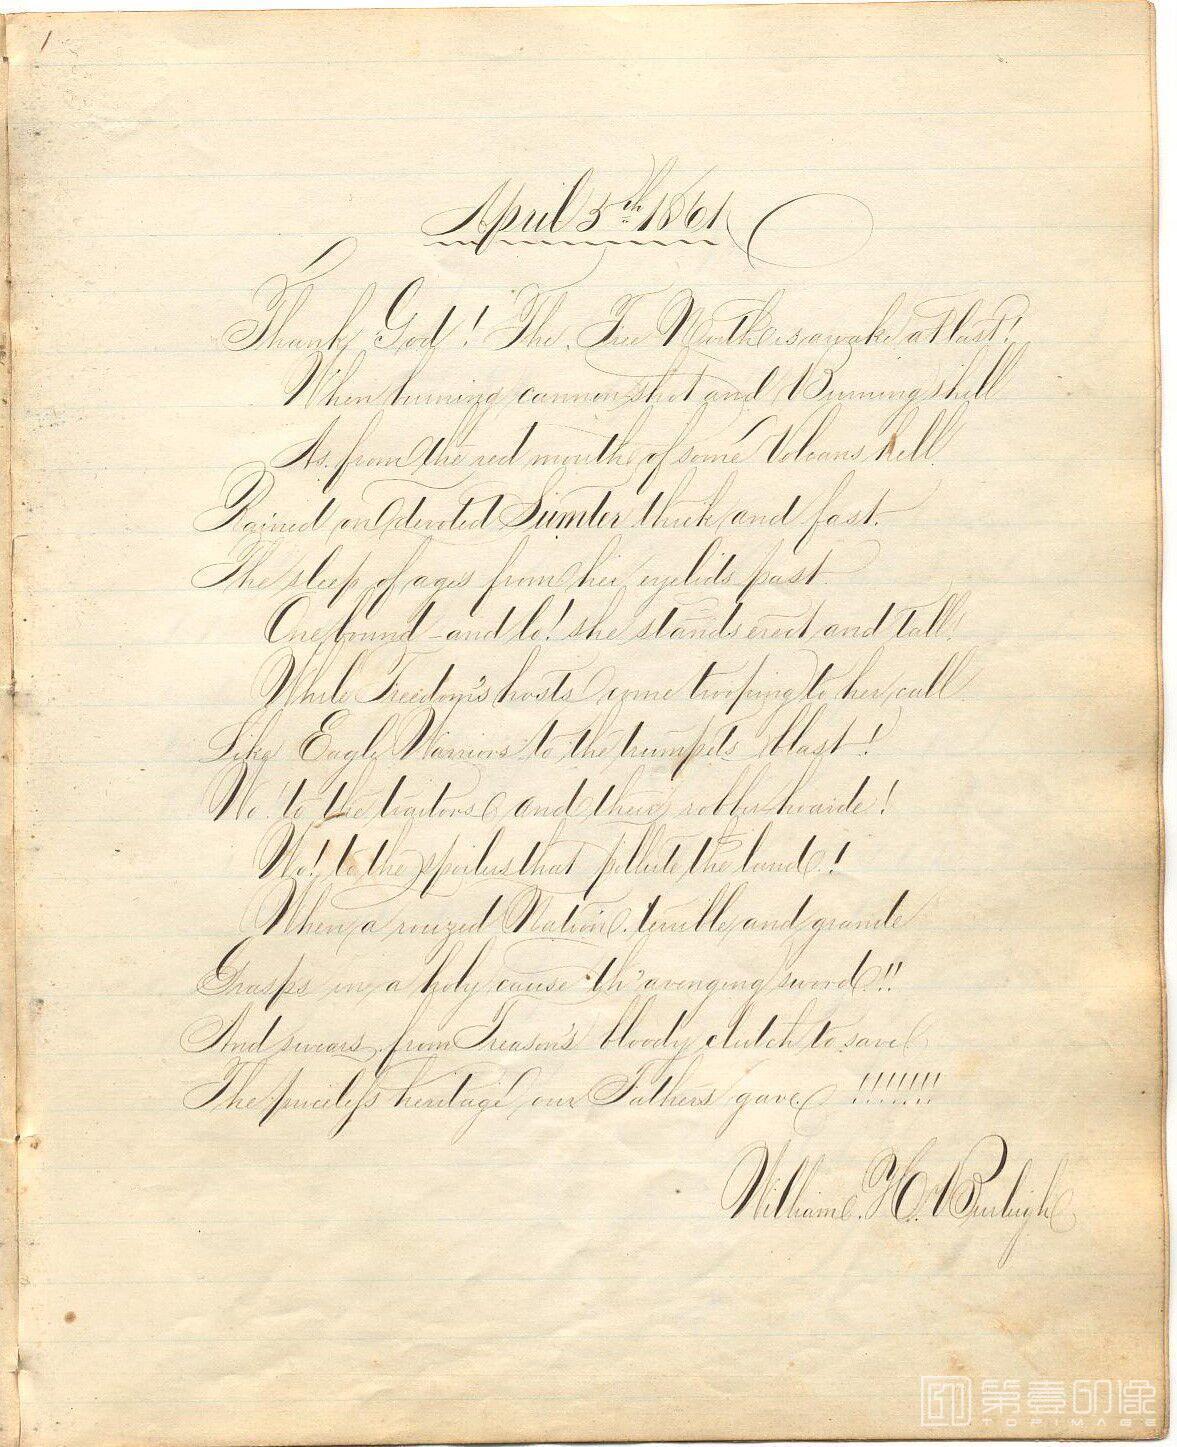 1
April 5th 1861
Thank God! The Free North is awake at last!
When burning cannon shot and Burning shell
As from the red mouth of some Volcans hell
Rained on devoted Sumter thick and fast.
The sleep of ages from her eyelids past.
One bound - and lo! she stands erect and tall!
While Freedom's hosts come trooping to her call
Like Eagle Warriors to the trumpets blast!
Wo! to the traitors and their robber hoarde!
Wo! to the spoilers that pollute the land!
When a rouzed Nation. terrible and grande
Grasps in a holy cause th' avenging sword!!!
And swears from Treason's bloody clutch to save
The priceless heritage our Fathers gave. !!!!!!!
William. H. Burleigh
第壹印像
TOPIMAGE